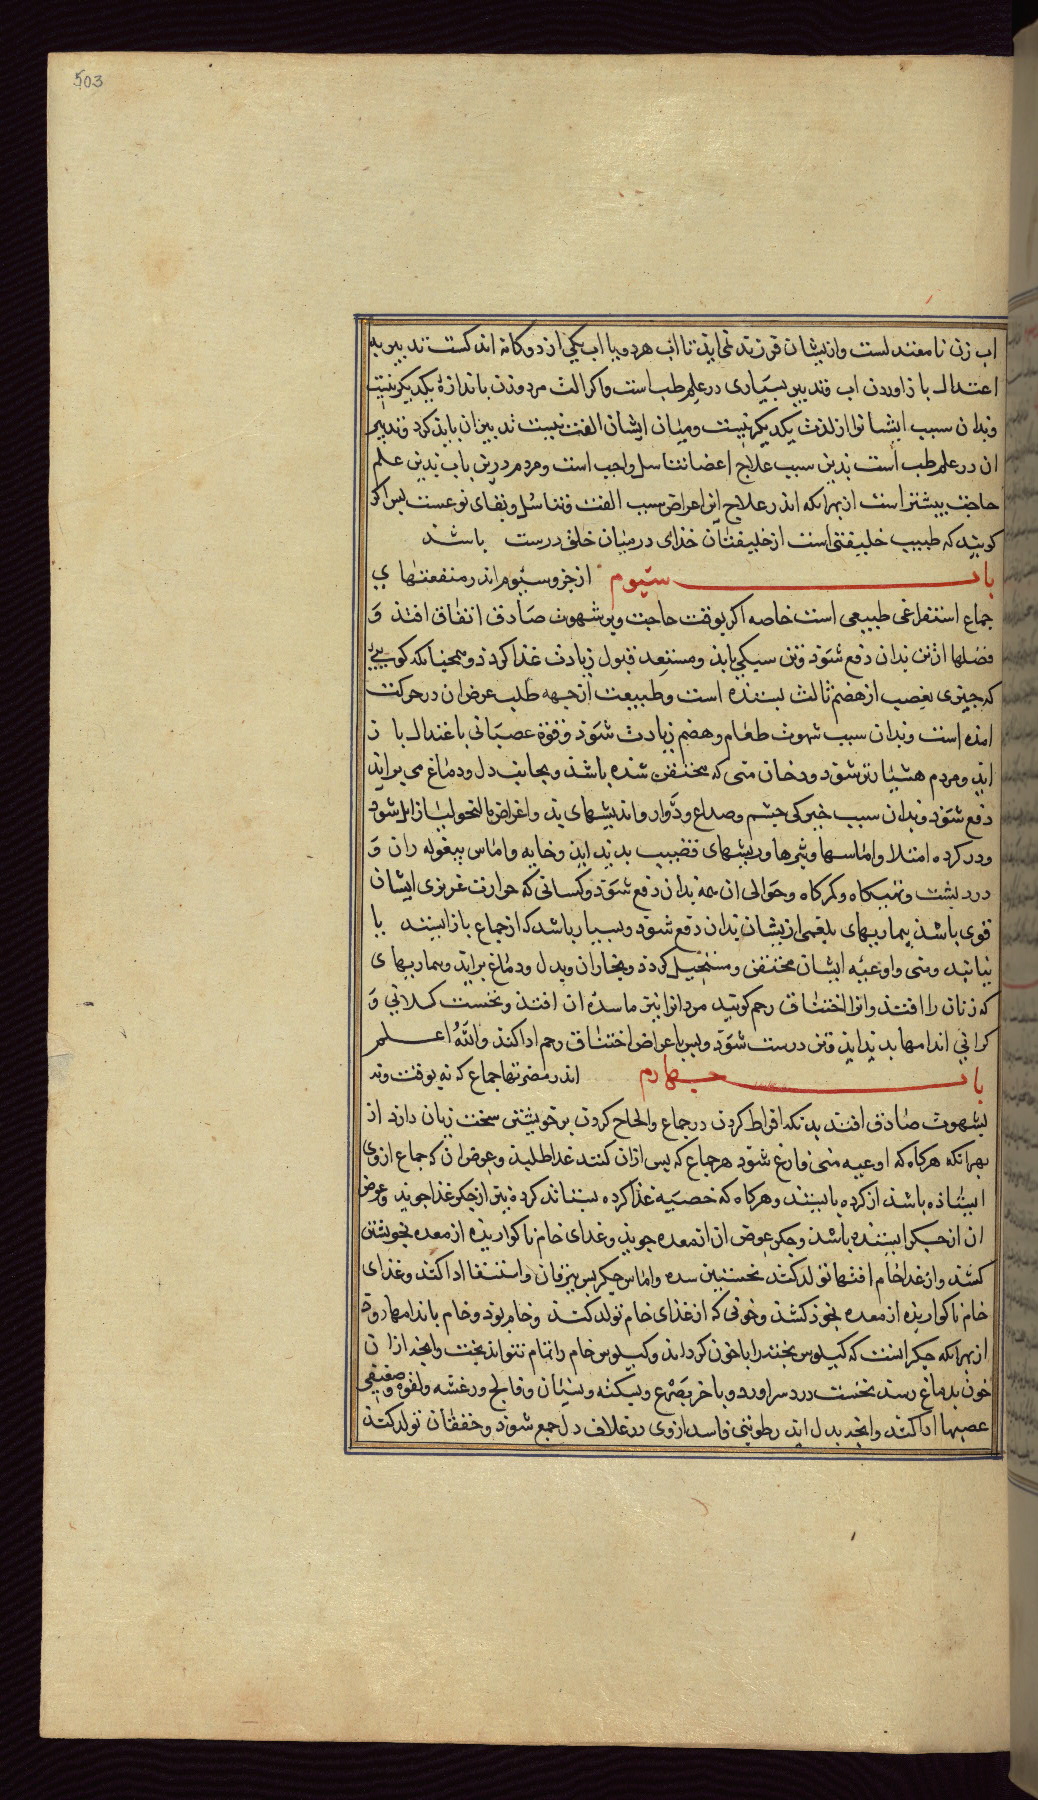 503
اب زن نا معتدلست وازیشان فرزند نمی اید تا اب هر دو یا اب یکی از دوکانه اندکست تدبیر به
اعتدال باز اوردن اب وتدبیر بسیاری در علم طب است واکر الت مرد وزن باندازهٔ یکدیکر نیست
وبدان سبب ایشانرا از لذت یکدیکر نیست ومیان ایشان الفت نیست تدبیر ان باید کرد وتدبیر
ان در علم طب است بدین سبب علاج اعضا تناسل واجب است ومردم درین باب بدین علم
حاجت بیشتر است از بهر انکه اندر علاج این اعراض سبب الفت وتناسل وبقای نوعست بس اکر
کویند که طبیب خلیفتی است از خلیفتان خذای در میان خلق درست باشد
باب سیوم از جزو سیوم اندر منفعتهای
جماع استفراغی طبیعی است خاصه اکر بوقت حاجت وبر شهوت صادق اتفاق افتد و
فضلها از تن بدان دفع شود وتن سبکی یابد ومستعد قبول زیادت غذا کردد وهمجنانکه کویی
که جیزی بغصب از هضم ثالث بستده است وطبیعت از جهه طلب عوض ان در حرکت
امده است وبدان سبب شهوت طعام وهضم زیادت شود وقوة عصبانی باعتدال باز
اید ومردم هشیارتر شود ودخان منی که محتقن شده باشد وبجانب دل ودماغ می براید
دفع شود وبدان سبب خیرکی جشم وصداع ودوار واندیشهای بد واعراض مالنحولیا زایل شود
ودرد کرده امتلا واماسها وبثرها وریشهای قضیب بدید اید وخایه واماس بیغوله ران و
درد بشت وتهیکاه وکمرکاه وحوالی ان همه بدان دفع شود وکسانی که حرارت غریزی ایشان
قوی باشد بیماریهای بلغمی ازیشان بدان دفع شود وبسیار باشد که از جماع باز ایستند یا
نیابند ومنی واوعیه ایشان محتقن ومستحیل کردد وبخار ان وبدل ودماغ براید وبیماریهای
که زنان را افتد وانرا اختناق رحم کویند مردانرا نیز ماسدٔه ان افتد ونخست کسلانی و
کرانی اندامها بدید اید وتن درست شود وبس باعراض اختناق رحم ادا کند واللّٰه اعلم
باب جهارم اندر مضرتها جماع که نه بوقت ونه
بشهوت صادق افتد بدانکه افراط کردن در جماع والحاح کردن بر خویشتن سخت زیان دارد از
بهر انکه هرکاه که اوعیه منی فارغ شود هر جماع که بس از ان کنند غذا طلبد وعوض ان که جماع از وی
ایستاده باشد از کرده باستد وهرکاه که خصیه غذا کرده بستاند کرده نیز از جکر غذا جوید وعوض
ان از جکر ایستده باشد وجکر عوض ان از معده جوید وغدای خام ناکواریده از معده بخویشتن
کشد واز غدا خام افتها تولد کند نخستین سده واماس جکر بس یرقان واستسقا ادا کند وغدای
خام ناکواریده از معده بخود کشد وخونی که از غدای خام تولد کند وخام بود وخام باندامها رود
از بهر انکه جکر است که کیلوس بخته را با خون کرداند وکیلوس خام را تمام نتواند بخت وانجه از ان
خون بدماغ رسد نخست درد سر اورد وباخر بصرع وسکته ونسیان وفالج ورعشه ولقوه وضعیفی
عصبها ادا کند وانجه بدل اید رطوبتی فاسد از وی در غلاف دل جمع شود وخفقان تولد کند